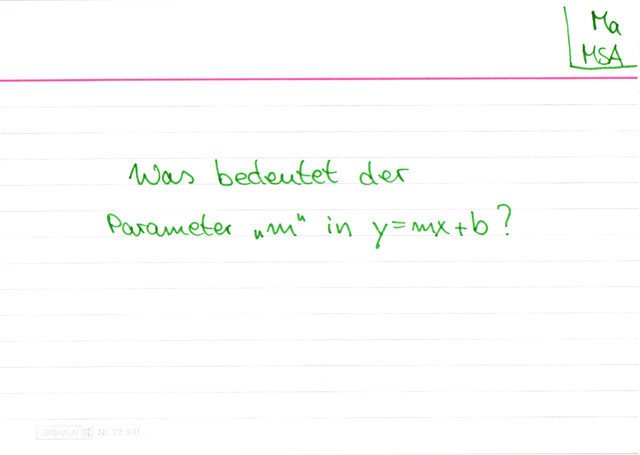 Ma
MSA
Was bedeutet der
Parameter „m" in y=mx+b?
Nr. 22 501